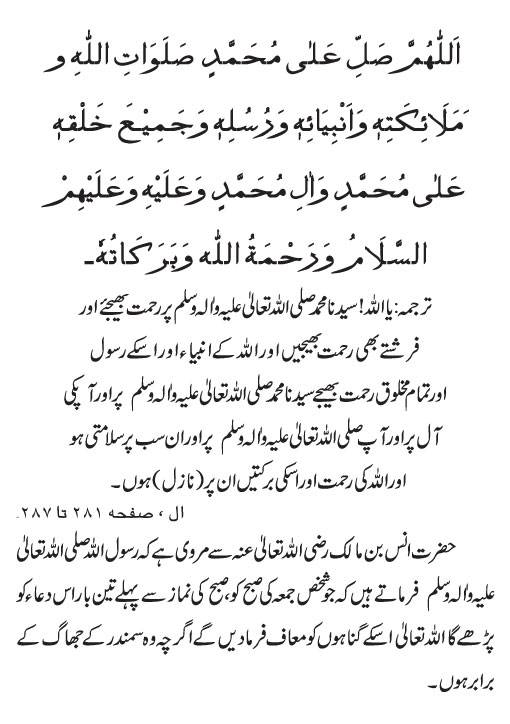 اَللّٰهُمَّ صَلِّ عَلٰى مُحَمَّدٍ صَلَوَاتِ اللّٰهِ وَ
مَلَائِكَتِهٖ وَاَنْبِيَائِهٖ وَرُسُلِهٖ وَجَمِيْعَ خَلْقِهٖ
عَلٰى مُحَمَّدٍ وَاٰلِ مُحَمَّدٍ وَعَلَيْهِ وَعَلَيْهِمْ
السَّلَامُ وَرَحْمَةُ اللّٰه وَبَرَكَاتُهٗ۔
ترجمہ: یا اللہ! سیدنا محمد صلی اللہ تعالیٰ علیہ والہ وسلم پر رحمت بھیجئے اور
فرشتے بھی رحمت بھیجیں اور اللہ کے انبیاء اور اسکے رسول
اور تمام مخلوق رحمت بھیجے سیدنا محمد صلی اللہ تعالیٰ علیہ والہ وسلم پر اور آپکی
آل پر اور آپ صلی اللہ تعالیٰ علیہ والہ وسلم پر اور ان سب پر سلامتی ہو
اور اللہ کی رحمت اور اسکی برکتیں ان پر (نازل) ہوں۔
ال ، صفحه ٢٨١ تا ٢٨٧۔
حضرت انس بن مالک رضی اللہ تعالیٰ عنہ سے مروی ہے کہ رسول اللہ صلی اللہ تعالیٰ
علیہ والہ وسلم فرماتے ہیں کہ جو شخص جمعہ کی صبح کو، صبح کی نماز سے پہلے تین بار اس دعاء کو
پڑھے گا اللہ تعالیٰ اسکے گناہوں کو معاف فرمادیں گے اگرچہ وہ سمندر کے جھاگ کے
برابر ہوں۔